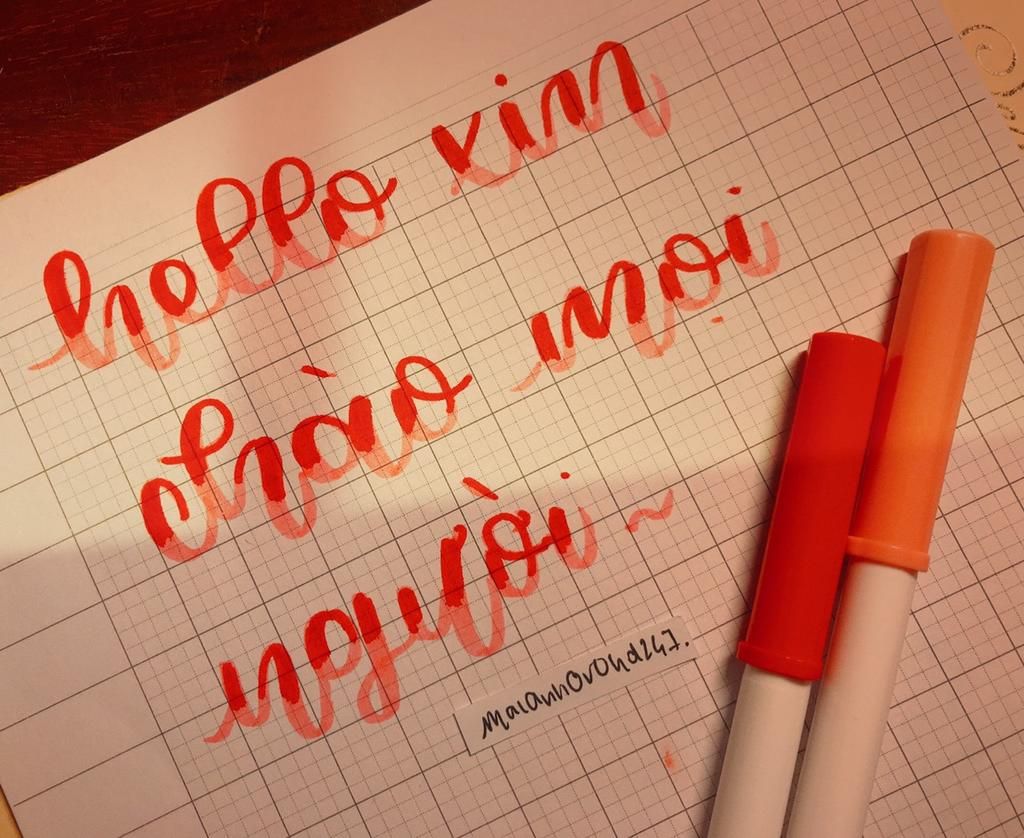 hello xin
chào mọi
người ~
maiannovohd247.